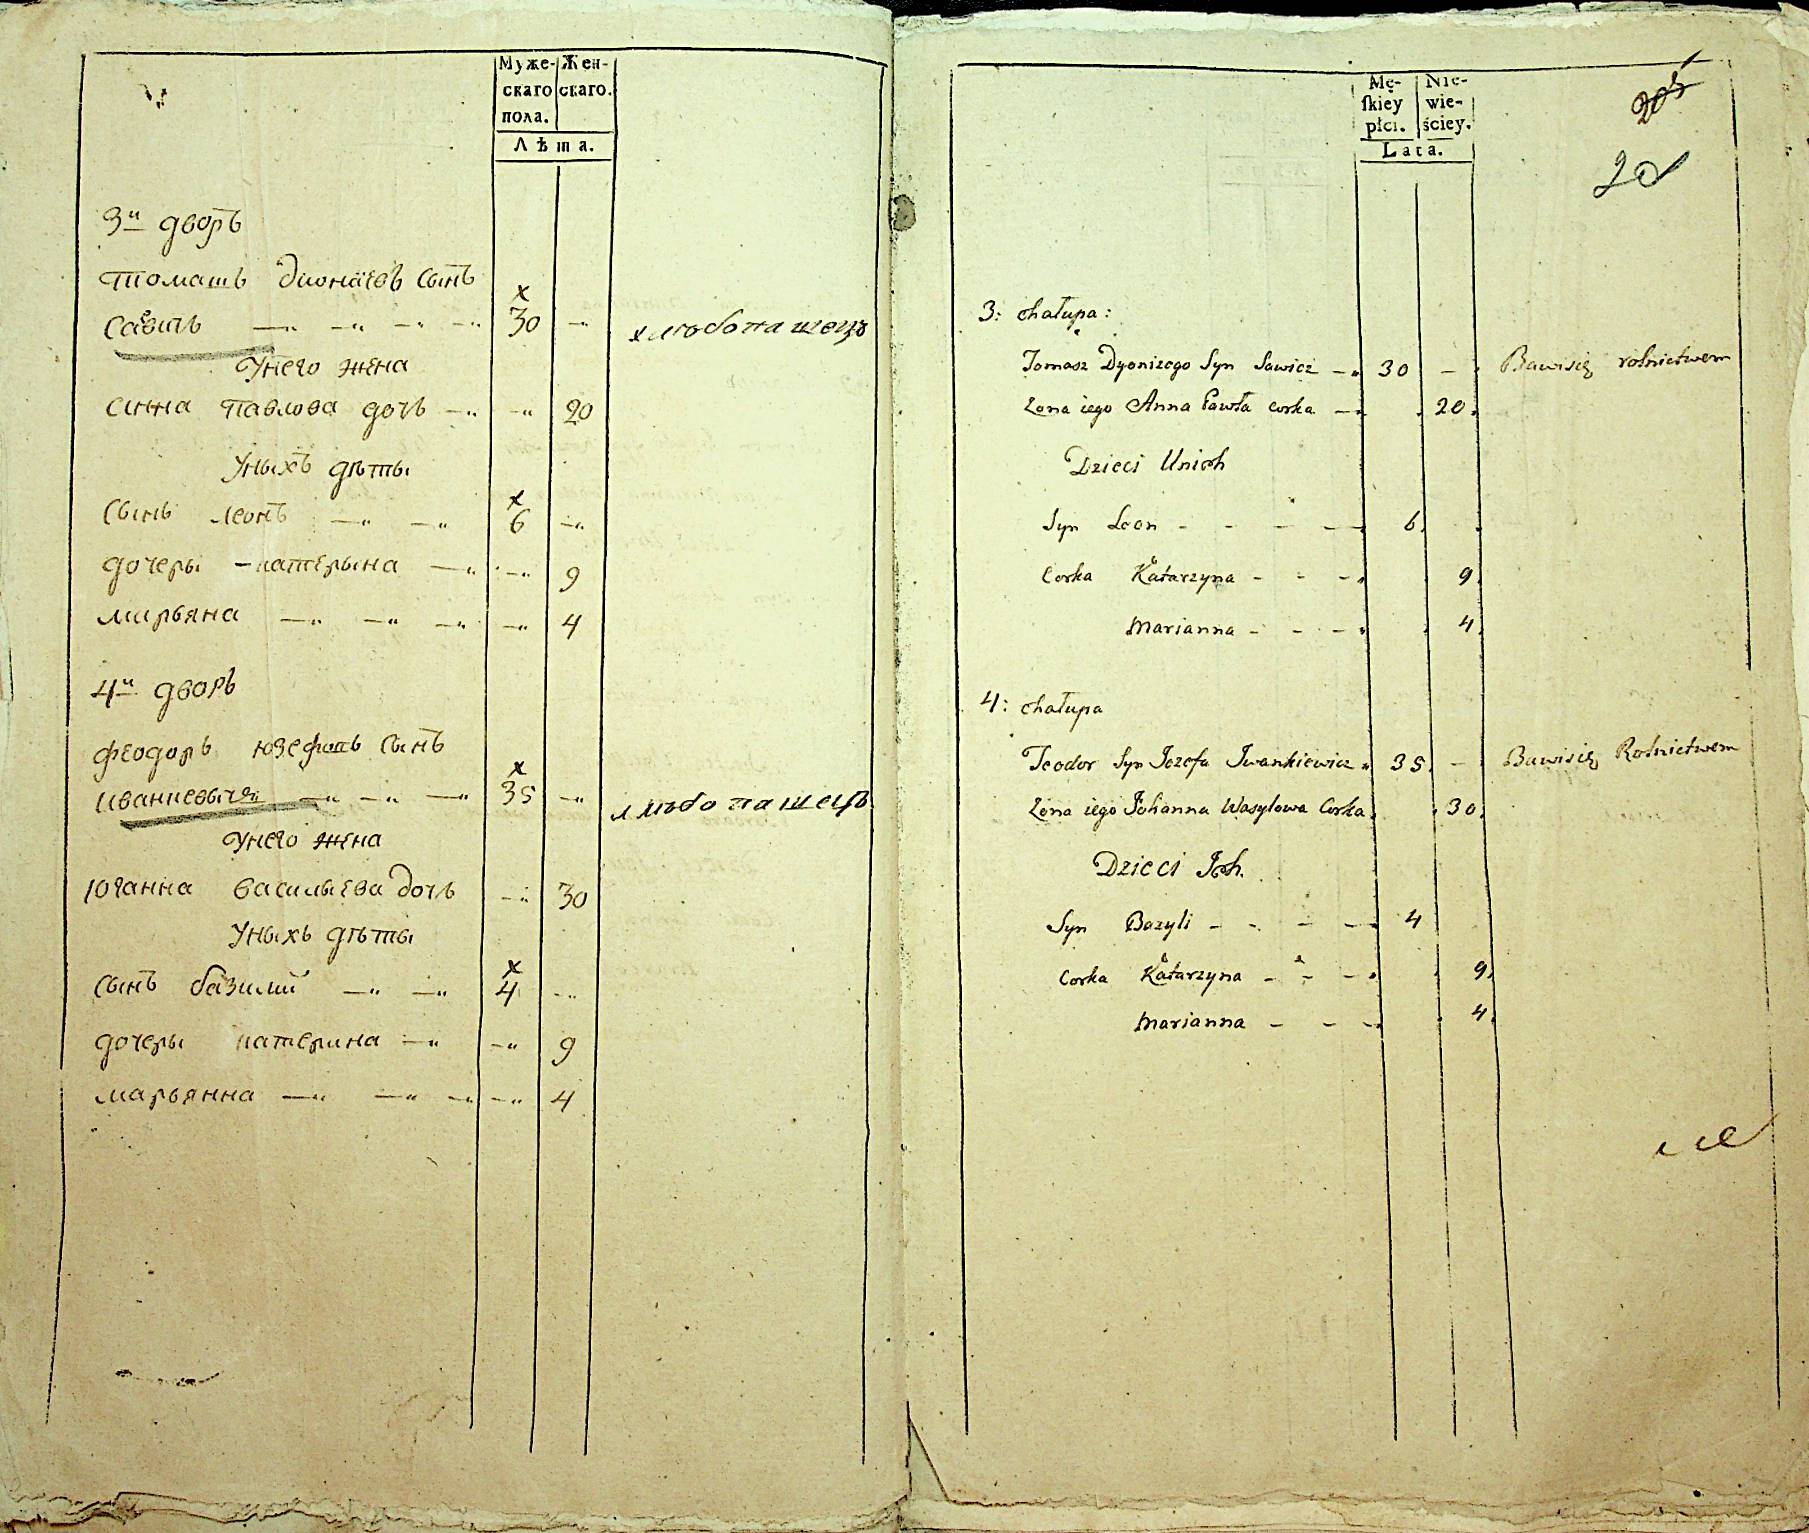 Муже- Жен-
скаго скаго.
пола.
Лѣта.
3й дворъ
Томашъ Дионизевъ Сынъ
Савичъ — — — — 30 — хлѣбопашецъ
У него жена
Анна Павлова дочь — — 20
У ныхъ дѣты
Сынъ Леонъ — — 6 —
дочеры Катерына — — 9
Марьяна — — — — 4
4й дворъ
Феодоръ Юзефовъ Сынъ
Иванкевичъ — — — 35 — хлѣбопашецъ
У него жена
Юганна Васильева дочь — 30
У ныхъ дѣты
Сынъ Базилий — — 4 —
дочеры Катерина — — 9
Марьянна — — — — 4
Mę- Nie-
ſkiey wie-
płci. ściey.
Lata.
205
20
3: Chałupa:
Tomasz Dyonizego Syn Sawicz — 30 — Bawi się rolnictwem
Zona iego Anna Pawła Corka — 20
Dzieci Unich
Syn Leon - - - — 6
Corka Katarzyna - - - 9
Marianna - - - 4
4: Chałupa
Teodor Syn Jozefa Iwankiewicz 35 — Bawi się Rolnictwem
Zona iego Johanna Wasylowa Corka 30
Dzieci Ich.
Syn Bazyli - - - — 4
Corka Katarzyna - - - 9
Marianna - - - 4